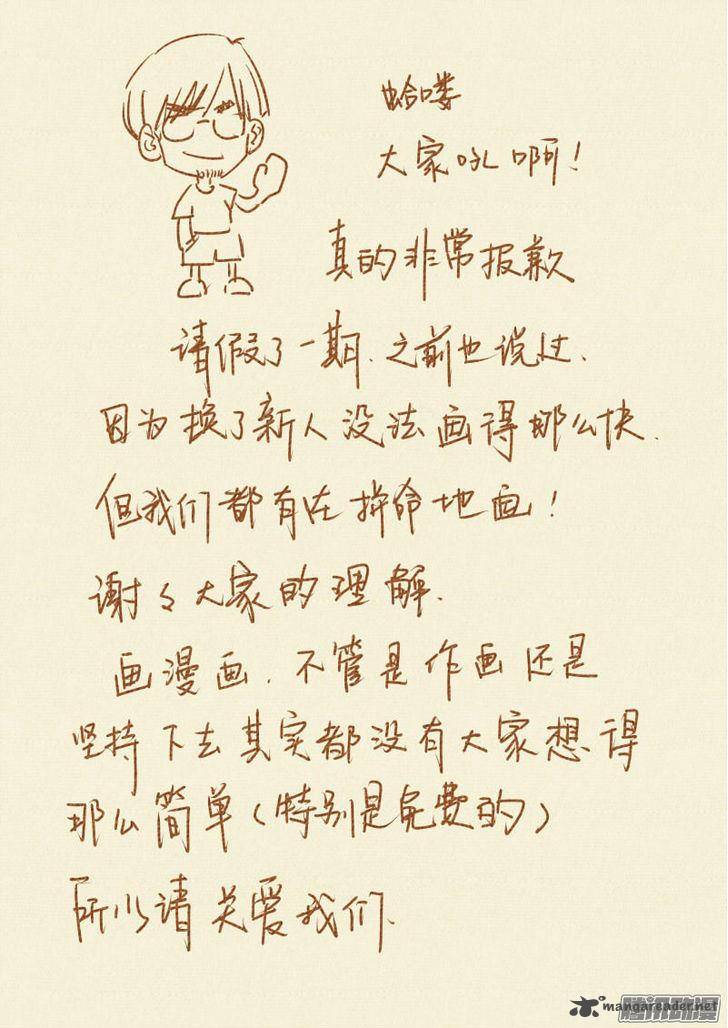 蛤喽
大家吼啊!
真的非常报歉
请假了一期.之前也说过.
因为换了新人没法画得那么快.
但我们都有在拼命地画!
谢々大家的理解.
画漫画.不管是作画还是
坚持下去其实都没有大家想得
那么简单(特别是免费的)
所以请关爱我们.
腾讯动漫
mangareader.net